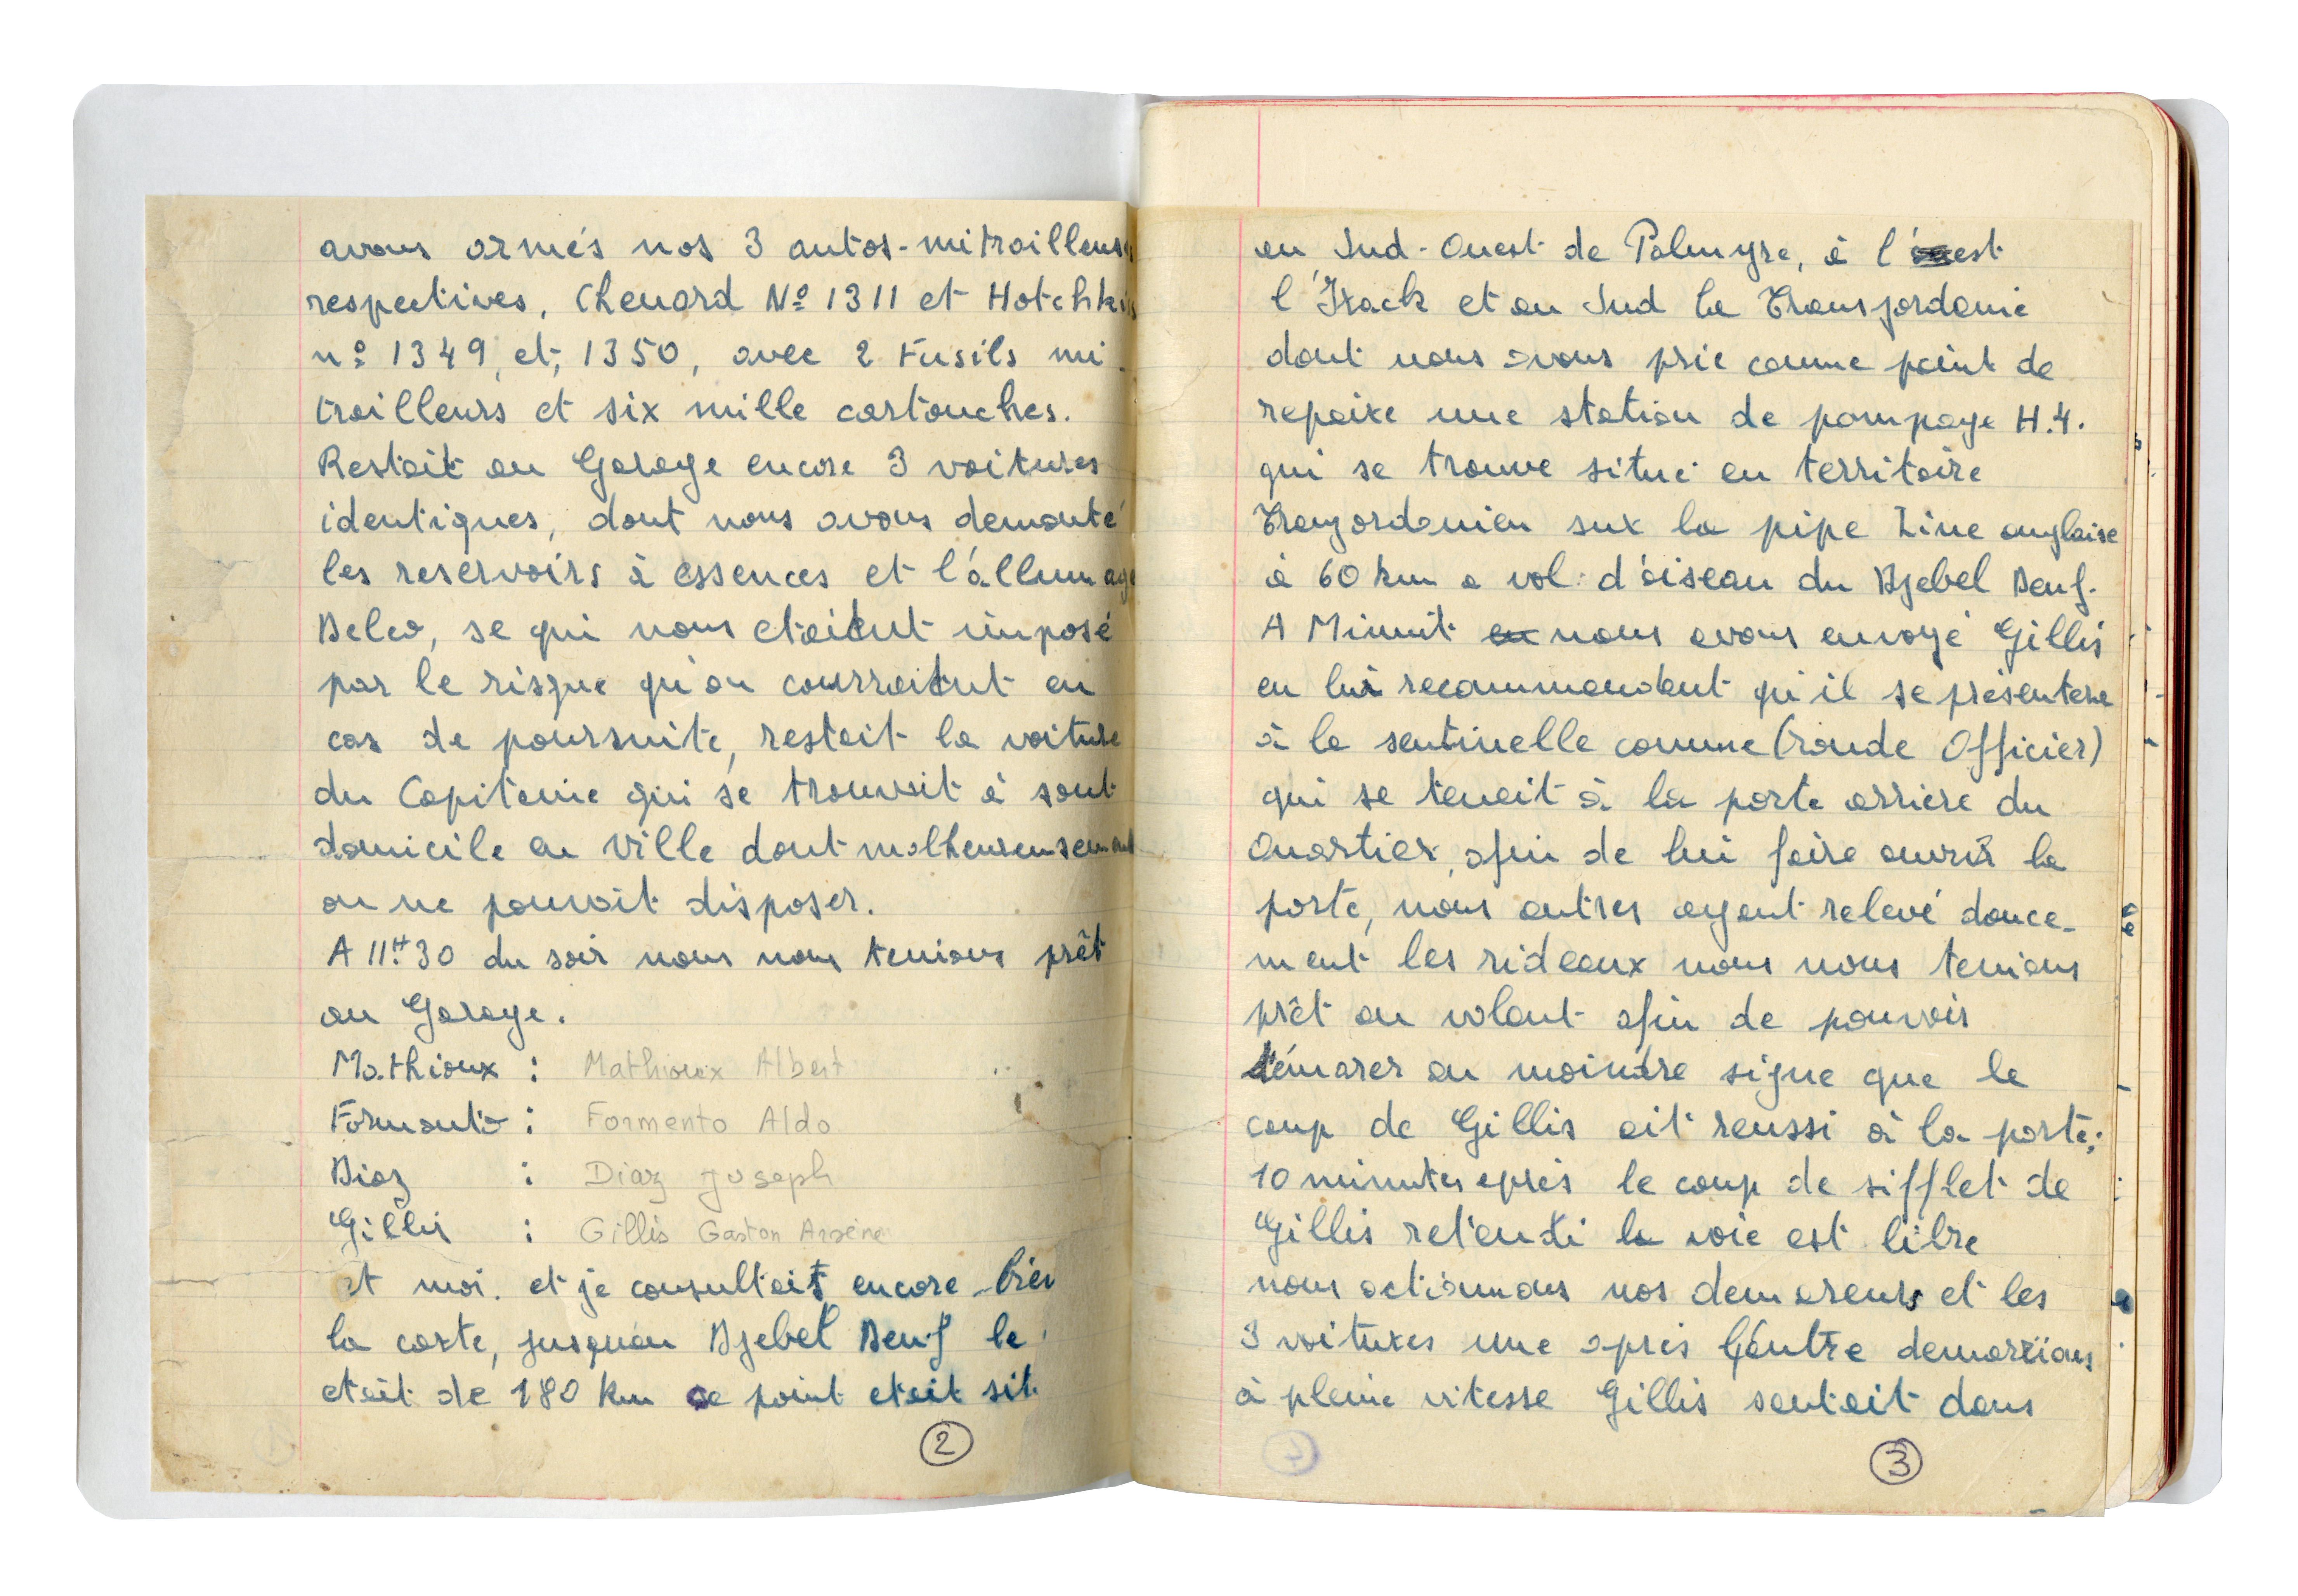 avons armés nos 3 autos-mitrailleuses
respectives, Chenard No 1311 et Hotchkiss
no 1349, et, 1350, avec 2 Fusils mi
trailleurs et six mille cartouches.
Restait au Garage encore 3 voitures
identiques, dont nous avons demonté
les reservoirs à essences et l'allumage
Delco, se qui nous etaitent imposé
par le risque qu'on courraitent en
cas de poursuite, restait la voiture
du Capitaine qui se trouvait à sont
domicile en ville dont malheureusement
on ne pouvait disposer.
A 11H30 du soir nous nous tenions prêt
au Garage.
Mathioux : Mathioux Albert
Formento : Formento Aldo
Diaz : Diaz Joseph
Gillis : Gillis Gaston Arsène
et moi. et je consultait encore bien
la carte, jusqu'au Djebel Deuf le
etait de 180 km ce point etait sit
au Sud-Ouest de Palmyre, à l'est
l'Irack et au Sud la Transjordanie
dont nous avons prie comme point de
repaire une station de pompage H.4.
qui se trouve situé en territoire
Tranjordanien sur la pipe Line anglaise
à 60 km a vol d'oiseau du Djebel Deuf.
A Minuit en nous avons envoyé Gillis
en lui recommandant qu'il se présentere
à la sentinelle comme (ronde Officier)
qui se tenait à la porte arriere du
Quartier, afin de lui faire ouvrir la
porte, nous autres ayant relevé douce-
ment les rideaux nous nous tenions
prêt au volant afin de pouvoir
démarer au moindre signe que le
coup de Gillis ait reussi à la porte;
10 minutes après le coup de sifflet de
Gillis retenti la voie est libre
nous actionnons nos demareurs et les
3 voitures une après l'autre demarrions
à pleine vitesse Gillis sautait dans
2
3